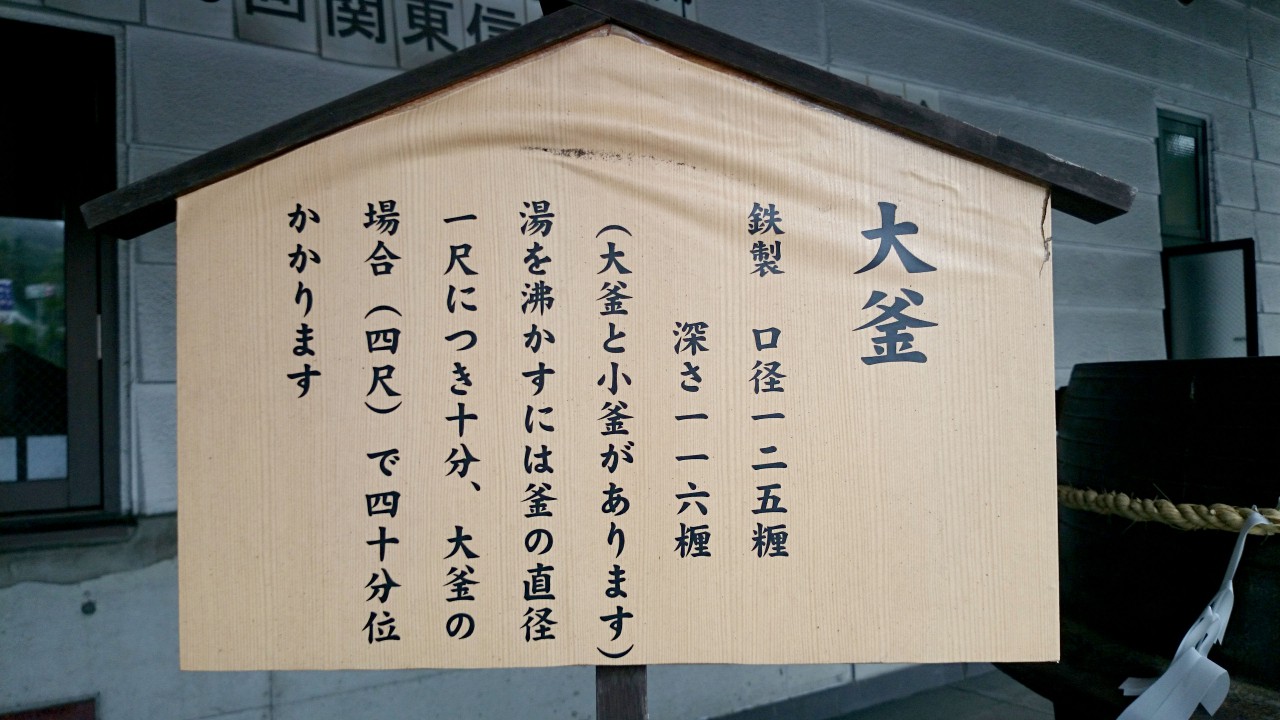 大釜
鉄製 口径一二五糎
深さ一一六糎
（大釜と小釜があります）
湯を沸かすには釜の直径
一尺につき十分、大釜の
場合（四尺）で四十分位
かかります
関東信